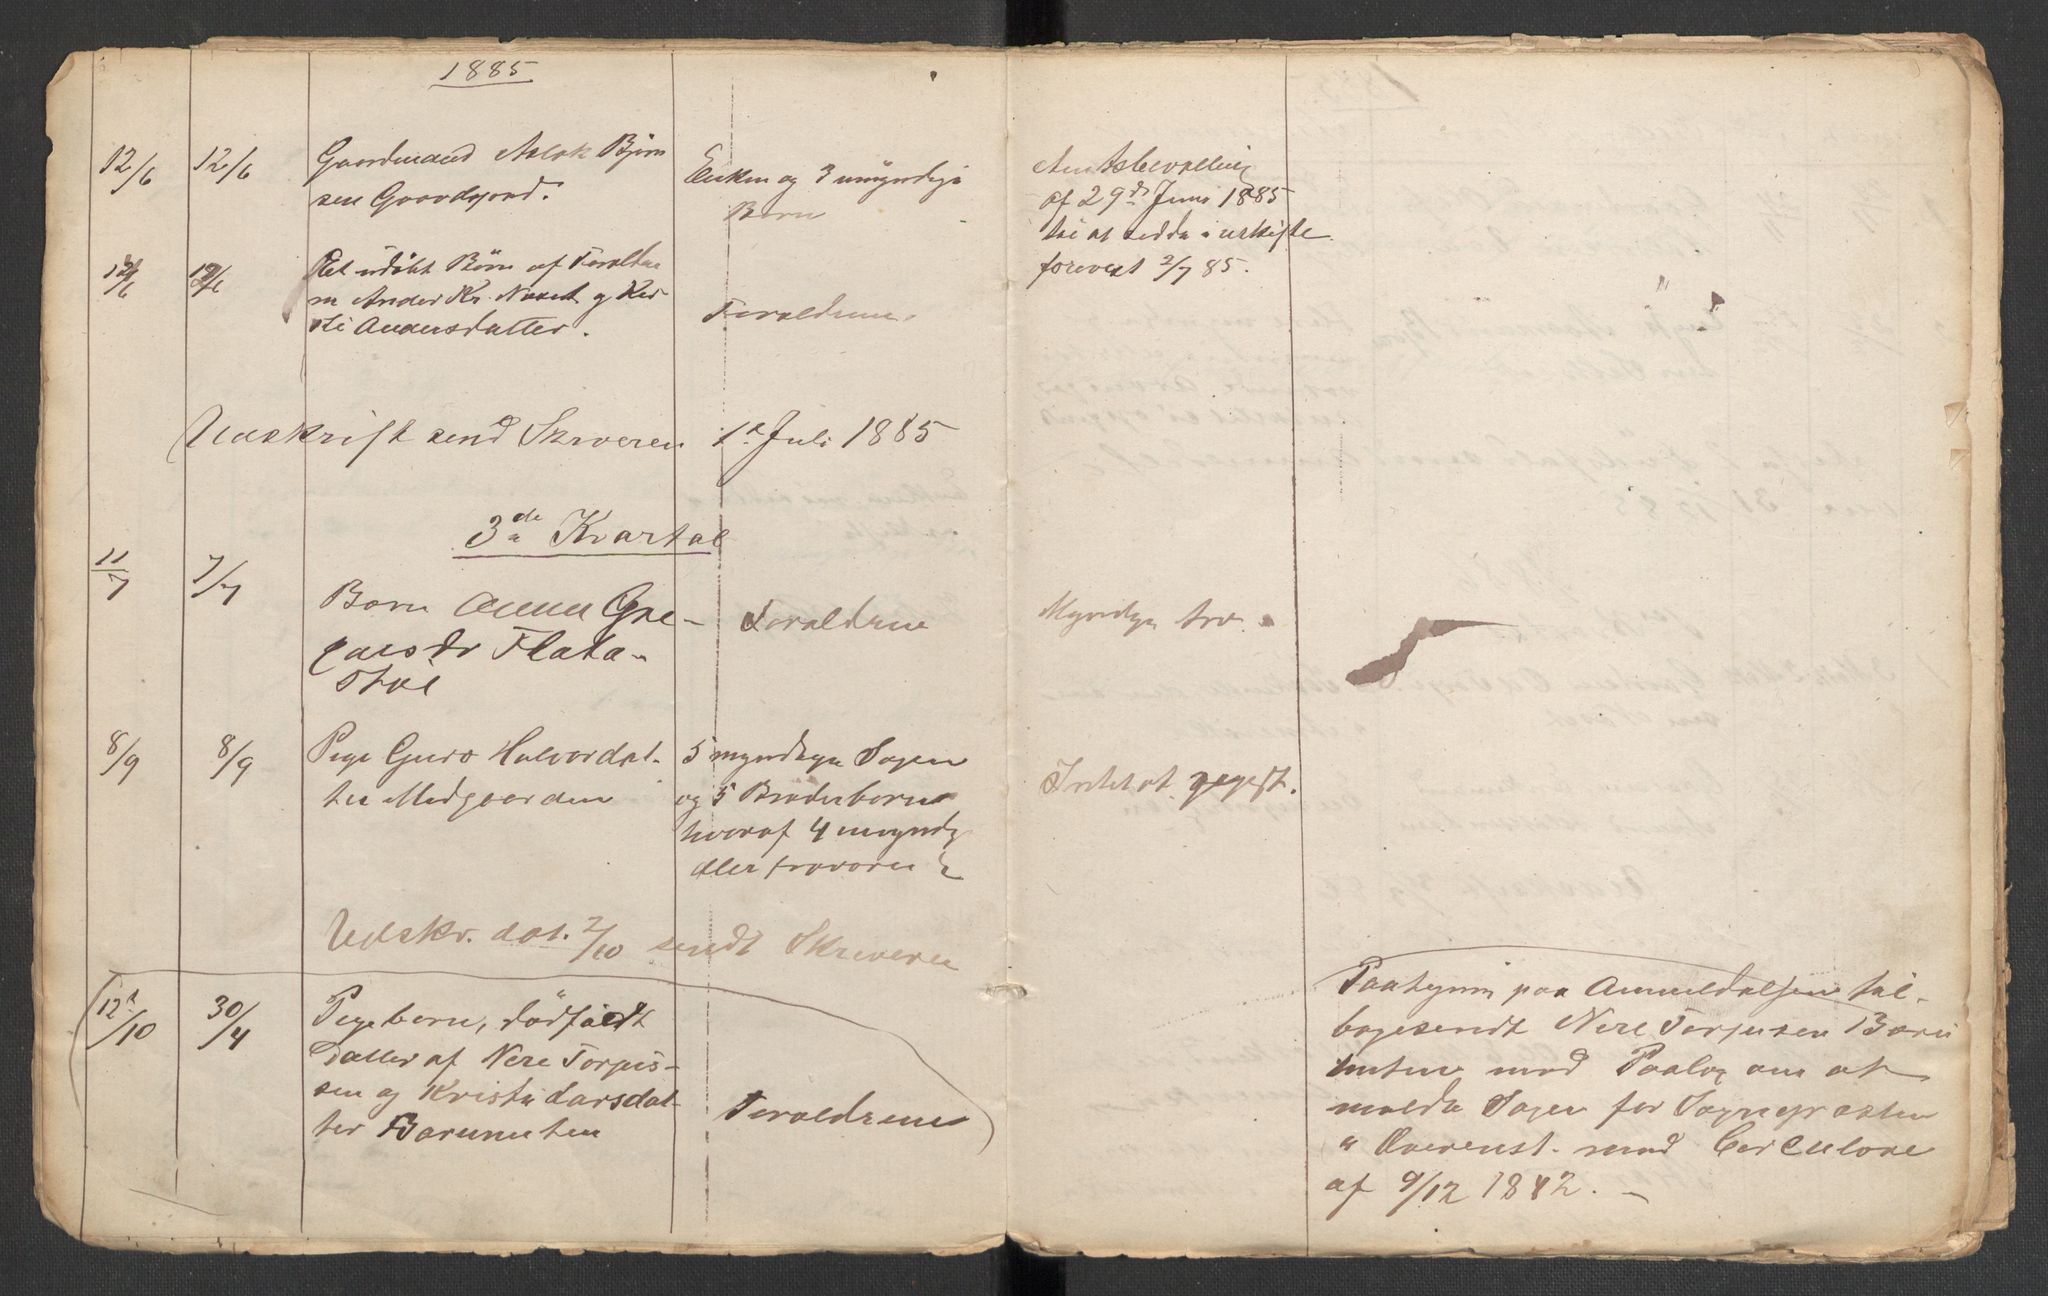 1885
12/6 12/6 Gaardmand Aslak Bjørn
sen Gaardsjord.
Enken og 3 umyndige
Børn
Amtsbevolling
af 29de Juni 1885
til at sidde i uskifte
forevist 2/7 85.
12/6 12/6 Et udøbt Barn af Forældre
ne Anders Kr. og Ker
sti Andersdatter.
Forældrene
Udskrift send Skriveren 1ste Juli 1885
3de Kvartal
11/7 7/7 Barn Anne Gre-
gaesdr Flata-
støl
Forældrene
Myndige Arv.
8/9 8/9 Pige Guro Halvordat-
ter Midgaarden
5 myndige Søsken
og 5 Brøderbørn
hvoraf 4 myndig
eller
Intet at
Udskr. dat. 2/10 sendt Skriveren
12te/10 30/4 Pigebarn, dødfødt
Datter af Nere Torjus-
sen og Kristi Larsdat-
ter Børunuten
Forældrene
Paategnin paa Anmeldelsen til-
bagesendt Nere Torjusen Børu
nuten med Paalæg om at
melde Sagen for Sognepræsten
i Overenst. med Circulære
af 9/12 1882.